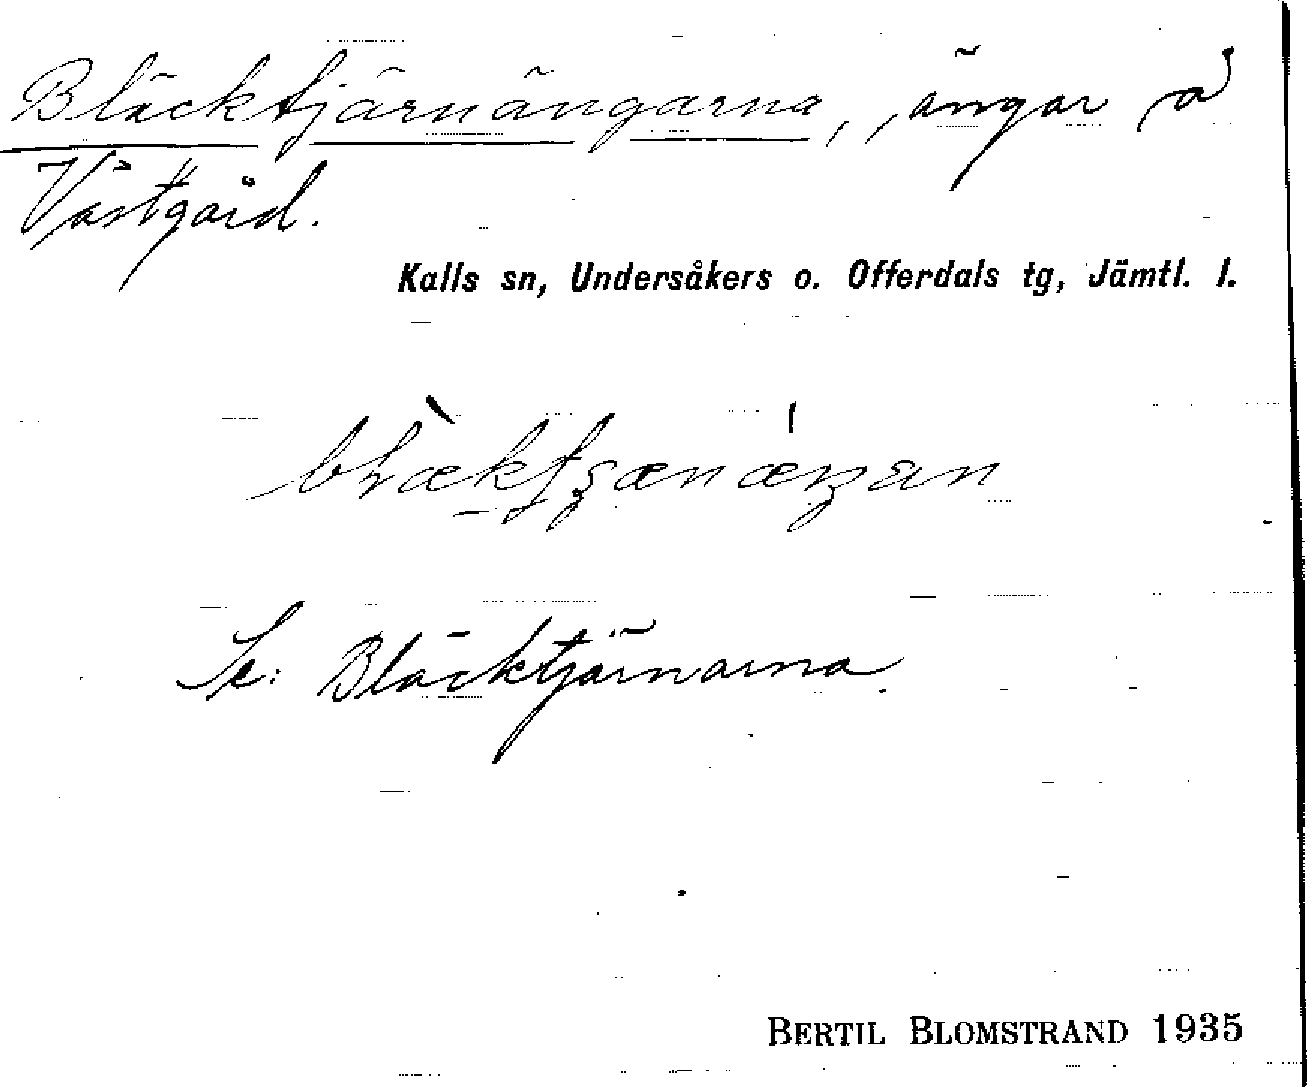 Bläcktjärnängarna, ängar å
Västgård.
Kalls sn, Undersåkers o. Offerdals tg, Jämtl. l.
Se: Bläcktjärnarna.
BERTIL BLOMSTRAND 1935